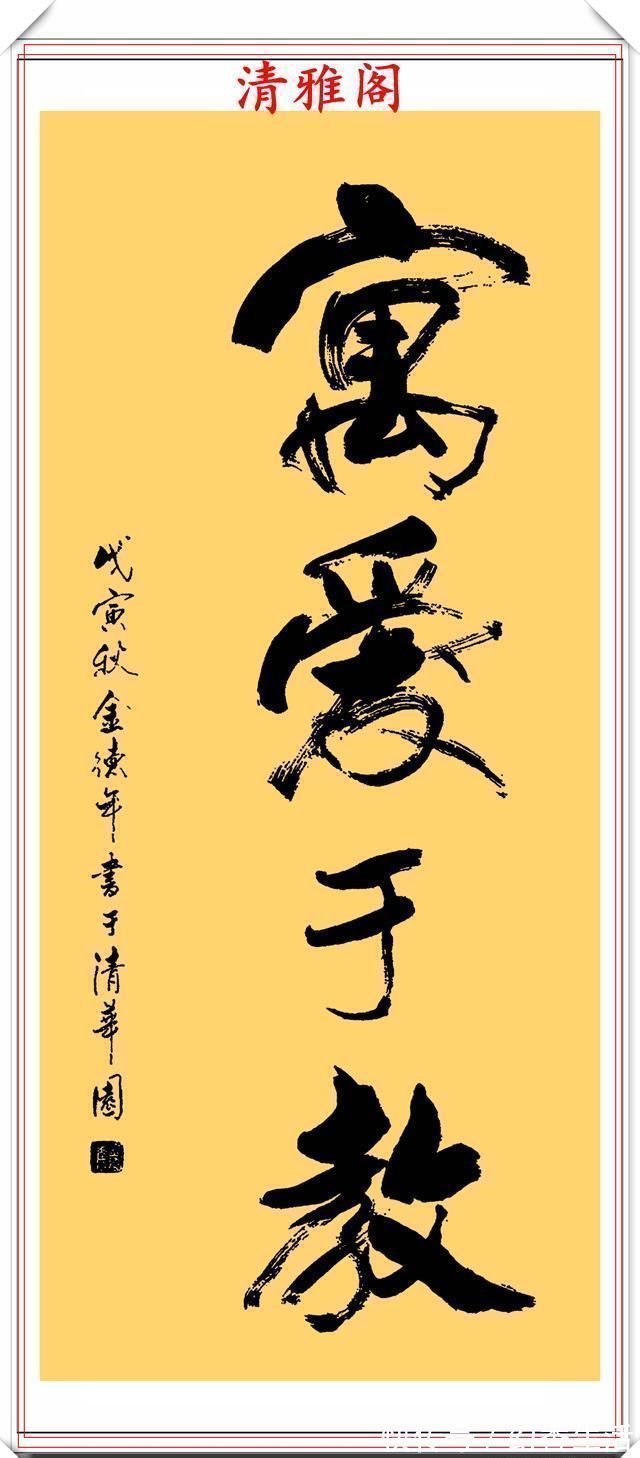 清雅阁
寓爱于教
戊寅秋金德年书于清華园